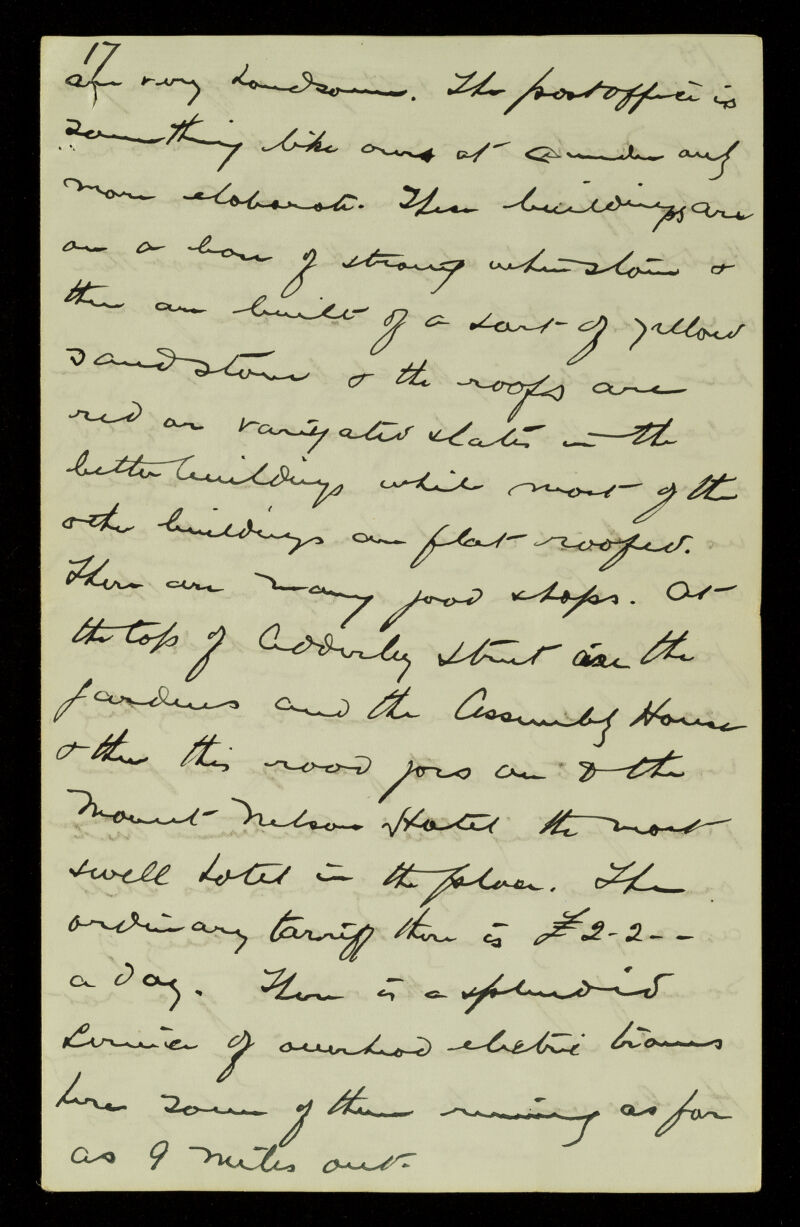 17
are very handsome. The postoffice is
something like ours at Dundee only
more elaborate. These buildings are
on a base of strong whinstone &
then are built of a sort of yellow
sandstone & the roofs are
red or varigated slates in the
better buildings while most of the
other buildings are flat roofed.
There are many good shops. At
the top of Adderley Street are the
gardens and the Assembly House
& then this road goes on to the
Mount Nelson Hotel the most
swell hotel in the place. The
ordinary tarriff there is £2-2--
a day. There is a splendid
service of overhead electric trams
here some of them running as far
as 9 miles out.